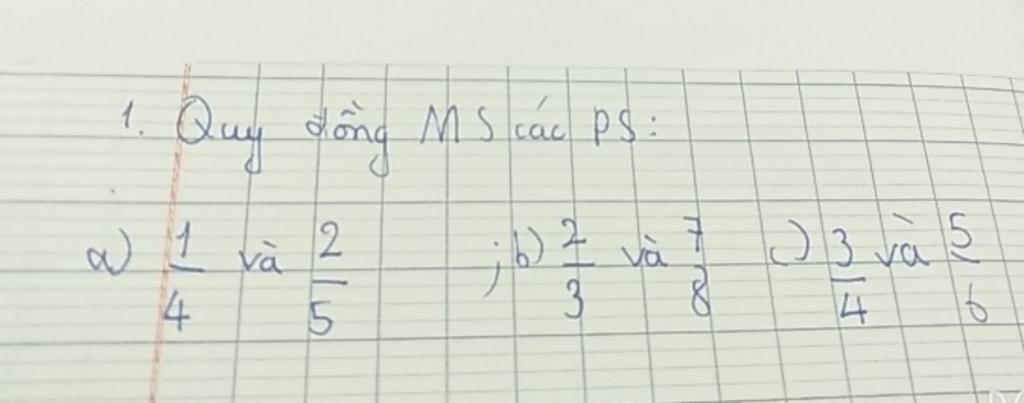 1. Quy đồng MS các PS:
a) 1/4 và 2/5 ; b) 2/3 và 7/8 c) 3/4 và 5/6